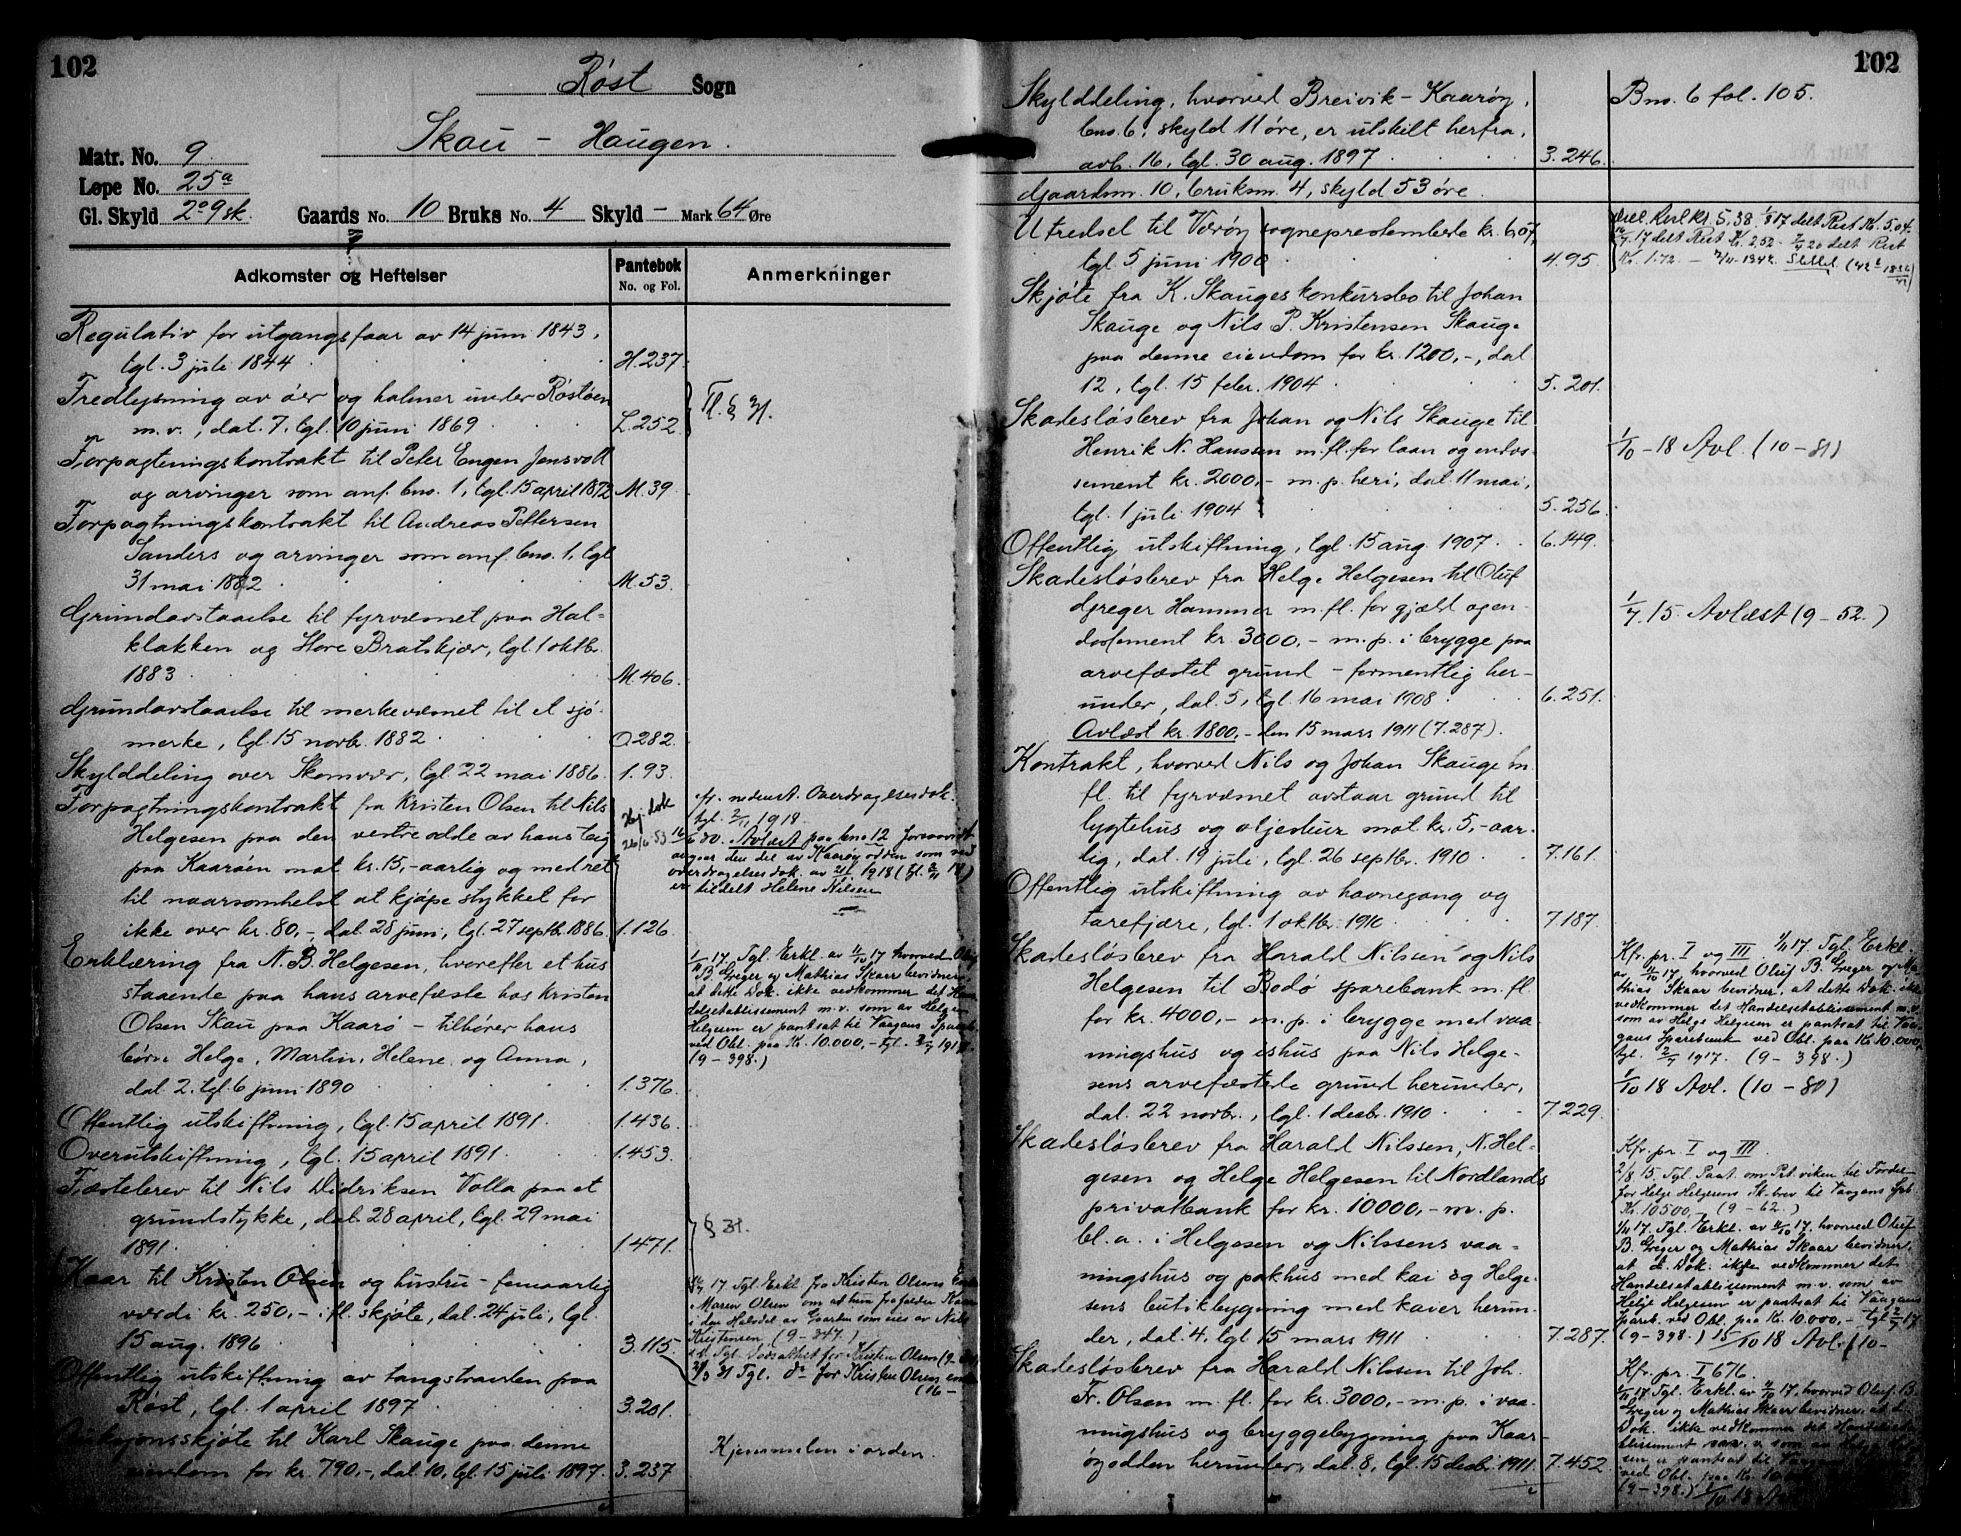 102
Røst Sogn
Skau - Haugen.
Matr. No. 9
Løpe No. 25a
Gl. Skyld 2 o 9 sk.
Gaards No. 10 Bruks No. 4 Skyld - Mark 64 Øre
Adkomster og Heftelser
Pantebok
No. og Fol.
Anmerkninger
Regulativ for utgangsfaar av 14 juni 1843,
tgl. 3 juli 1844 H.237.
Fredlysning av øer og holmer under Røstøen
m.v., dat. 7, tgl. 10 juni 1869 L.252.
Forpagtningskontrakt til Peter Engen Jensvoll
og arvinger som anf. bno. 1, tgl. 15 april 1872 M.39
Forpagtningskontrakt til Andreas Pettersen
Sanders og arvinger som anf. bno. 1, tgl.
31 mai 1882 M.53.
Grundavstaaelse til fyrvæsnet paa Hal-
klakken og Hore Bratskjær, tgl. 1 oktbr.
1883 M.406.
Grundavstaaelse til merkevæsnet til et sjø-
merke, tgl. 15 novbr. 1882 O 282.
Skylddeling over Skomvær, tgl. 22 mai 1886. 1.93.
Forpagtningskontrakt fra Kristen Olsen til Nils
Helgesen paa den vestre odde av hans teig
paa Kaarøen mot kr. 15,- aarlig og med ret
til naarsomhelst at kjøpe stykket for
ikke over kr. 80,-, dat. 28 juni, tgl. 27 septbr. 1886. 1.126.
jfr. nedenst. Overdragelsesdok.
tgl. 2/11 1918.
Avlæst paa bno 12 forsaavidt
angaar den del av Kaarøyodden som ved
overdragelsesdok. av
er tildelt Helene Nilsen
Erklæring fra N.B. Helgesen, hvorefter et hus
staaende paa hans arvefæste hos Kristen
Olsen Skau paa Kaarø - tilhører hans
børn Helge, Martin, Helene og Anna,
dat. 2. tgl 6 juni 1890 1.376.
17. Tgl. Erkl. av 17 hvorved Oluf
B. Greger og Mathias Skaar bevidner,
at dette Dok. ikke vedkommer det Han-
delsetablissement m.v. som av Helge
Helgesen er pantsat til Vaagans Spareb.
ved Obl. paa Kr. 10.000,- tgl. 2/7 1917.
(9-398.)
Offentlig utskiftning, tgl. 15 april 1891. 1.436.
Overutskiftning, tgl. 15 april 1891. 1.453.
Fæstebrev til Nils Didriksen Volla paa et
grundstykke, dat. 28 april, tgl. 29 mai
1891. 1.471.
§ 31.
Kaar til Kristen Olsen og hustru - femaarlig
værdi kr. 250,- i fl. skjøte, dat. 24 juli, tgl.
15 aug. 1896 3.115.
17. Tgl. Erkl. fra Kristen Olsens Enke
Maren Olsen om at hun frafalder Kaar
i den Halvdel av Gaarden som eies av Nils
Kristensen (9-347.)
Offentlig utskiftning av tangstranden paa
Røst, tgl. 1 april 1897 3.201.
Auksjonsskjøte til Karl Skauge paa denne
eiendom for kr. 790,-, dat. 10, tgl. 15 juli 1897. 3.237
Hjemmelen i orden.
102
Skylddeling, hvorved Breivik - Kaarøy,
bno. 6, skyld 11 øre, er utskilt herfra,
avh. 16, tgl. 30 aug. 1897 3.246.
Bno. 6 fol. 105.
Gaardsnr. 10, bruksnr. 4, skyld 53 øre.
Utredsel til Værøy sogneprestembede kr. 6,07,
tgl. 5 juni 1900 4.95.
Skjøte fra K. Skauges konkursbo til Johan
Skauge og Nils P. Kristensen Skauge
paa denne eiendom for kr. 1200,-, dat.
12, tgl. 15 febr. 1904 5.201.
Skadesløsbrev fra Johan og Nils Skauge til
Henrik N. Hanssen m.fl. for laan og endos-
sement kr. 2000,- m.p. heri, dat. 11 mai,
tgl. 1 juli 1904 5.256.
1/10 - 18 Avl. (10 - 81)
Offentlig utskiftning, tgl. 15 aug. 1907. 6.149.
Skadesløsbrev fra Helge Helgesen til Oluf
Greger Hammer m.fl. for gjæld og en-
dossement kr. 3000,- m.p. i brygge paa
arvefæstet grund - formentlig her-
under, dat. 5, tgl. 16 mai 1908. 6.251.
1/7. 15 Avlæst (9 - 52.)
Avlæst kr. 1800,- den 15 mars 1911 (7.287).
Kontrakt, hvorved Nils og Johan Skauge m.
fl. til fyrvæsnet avstaar grund til
lygtehus og oljeskur mot kr. 5,- aar-
lig, dat. 19 juli, tgl. 26 septbr. 1910 7.161.
Offentlig utskiftning av havnegang og
tarefjære, tgl. 1 oktbr. 1910 7.187.
Skadesløsbrev fra Harald Nilsen og Nils
Helgesen til Bodø sparebank m.fl.
for kr. 4000,- m.p. i brygge med vaa-
ningshus og ishus paa Nils Helge-
sens arvefæstede grund herunder,
dat. 22 novbr., tgl. 1 desbr. 1910 7.229.
Kfr. pr. I og III. 17 Tgl. Erkl.
av 17, hvorved Oluf B. Greger og Ma-
thias Skaar bevidner, at dette Dok. ikke
vedkommer det Handelsetablissement m.v.
som av Helge Helgesen er pantsat til Vaa-
gans Sparebank ved Obl. paa Kr. 10.000,-
tgl. 2/7 1917. (9 - 398.)
1/10 18 Avl. (10 - 80)
Skadesløsbrev fra Harald Nilssen, N. Hel-
gesen og Helge Helgesen til Nordlands
privatbank for kr. 10000,- m.p.
bl.a. i Helgesen og Nilssens vaa-
ningshus og pakhus med kai og Helge-
sens butikbygning med kaier herun-
der, dat. 4, tgl 15 mars 1911 7.287.
Kfr. pr. I og III.
for Helge Helgesens Sk.brev til Vaagans Spb.
Kr. 10500,- (9 - 62.)
17. Tgl. Erkl. av 17, hvorved Oluf
B. Greger og Mathias Skaar bevidner,
at d. Dok. ikke vedkommer det
Handelsetablissement m.v. som av
Helge Helgesen er pantsat til Vaagans
Spareb. ved Obl. paa Kr. 10.000,- tgl 2/7 17
(9 - 398.) 15/10 18 Avl. (10-
Skadesløsbrev fra Harald Nilsen til Joh.
Fr. Olsen m.fl. for kr. 3000,- m.p. i vaa-
ningshus og bryggebygning paa Kaar-
øyodden herunder, dat. 8, tgl. 15 desbr. 1911. 7.452
Kfr. pr. I 676.
17. Tgl. Erkl. av 17. hvorved Oluf B.
Greger og Mathias Skaar bevidner at d.
Dok. ikke vedkommer det Handelseta-
blissement
(9-398.)